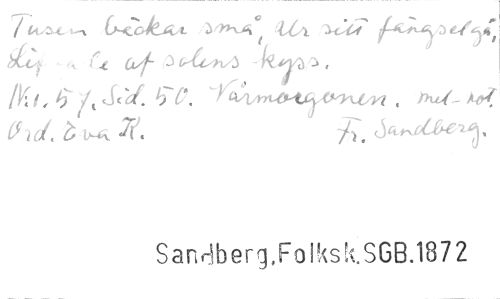 Tusen bäckar små, Ur sitt fängsel gå,
af solens kyss.
N:r. 57. Sid. 50. Vårmorgonen. mel-not
Ord. Eva K. Fr. Sandberg.
Sandberg,Folksk.SGB.1872